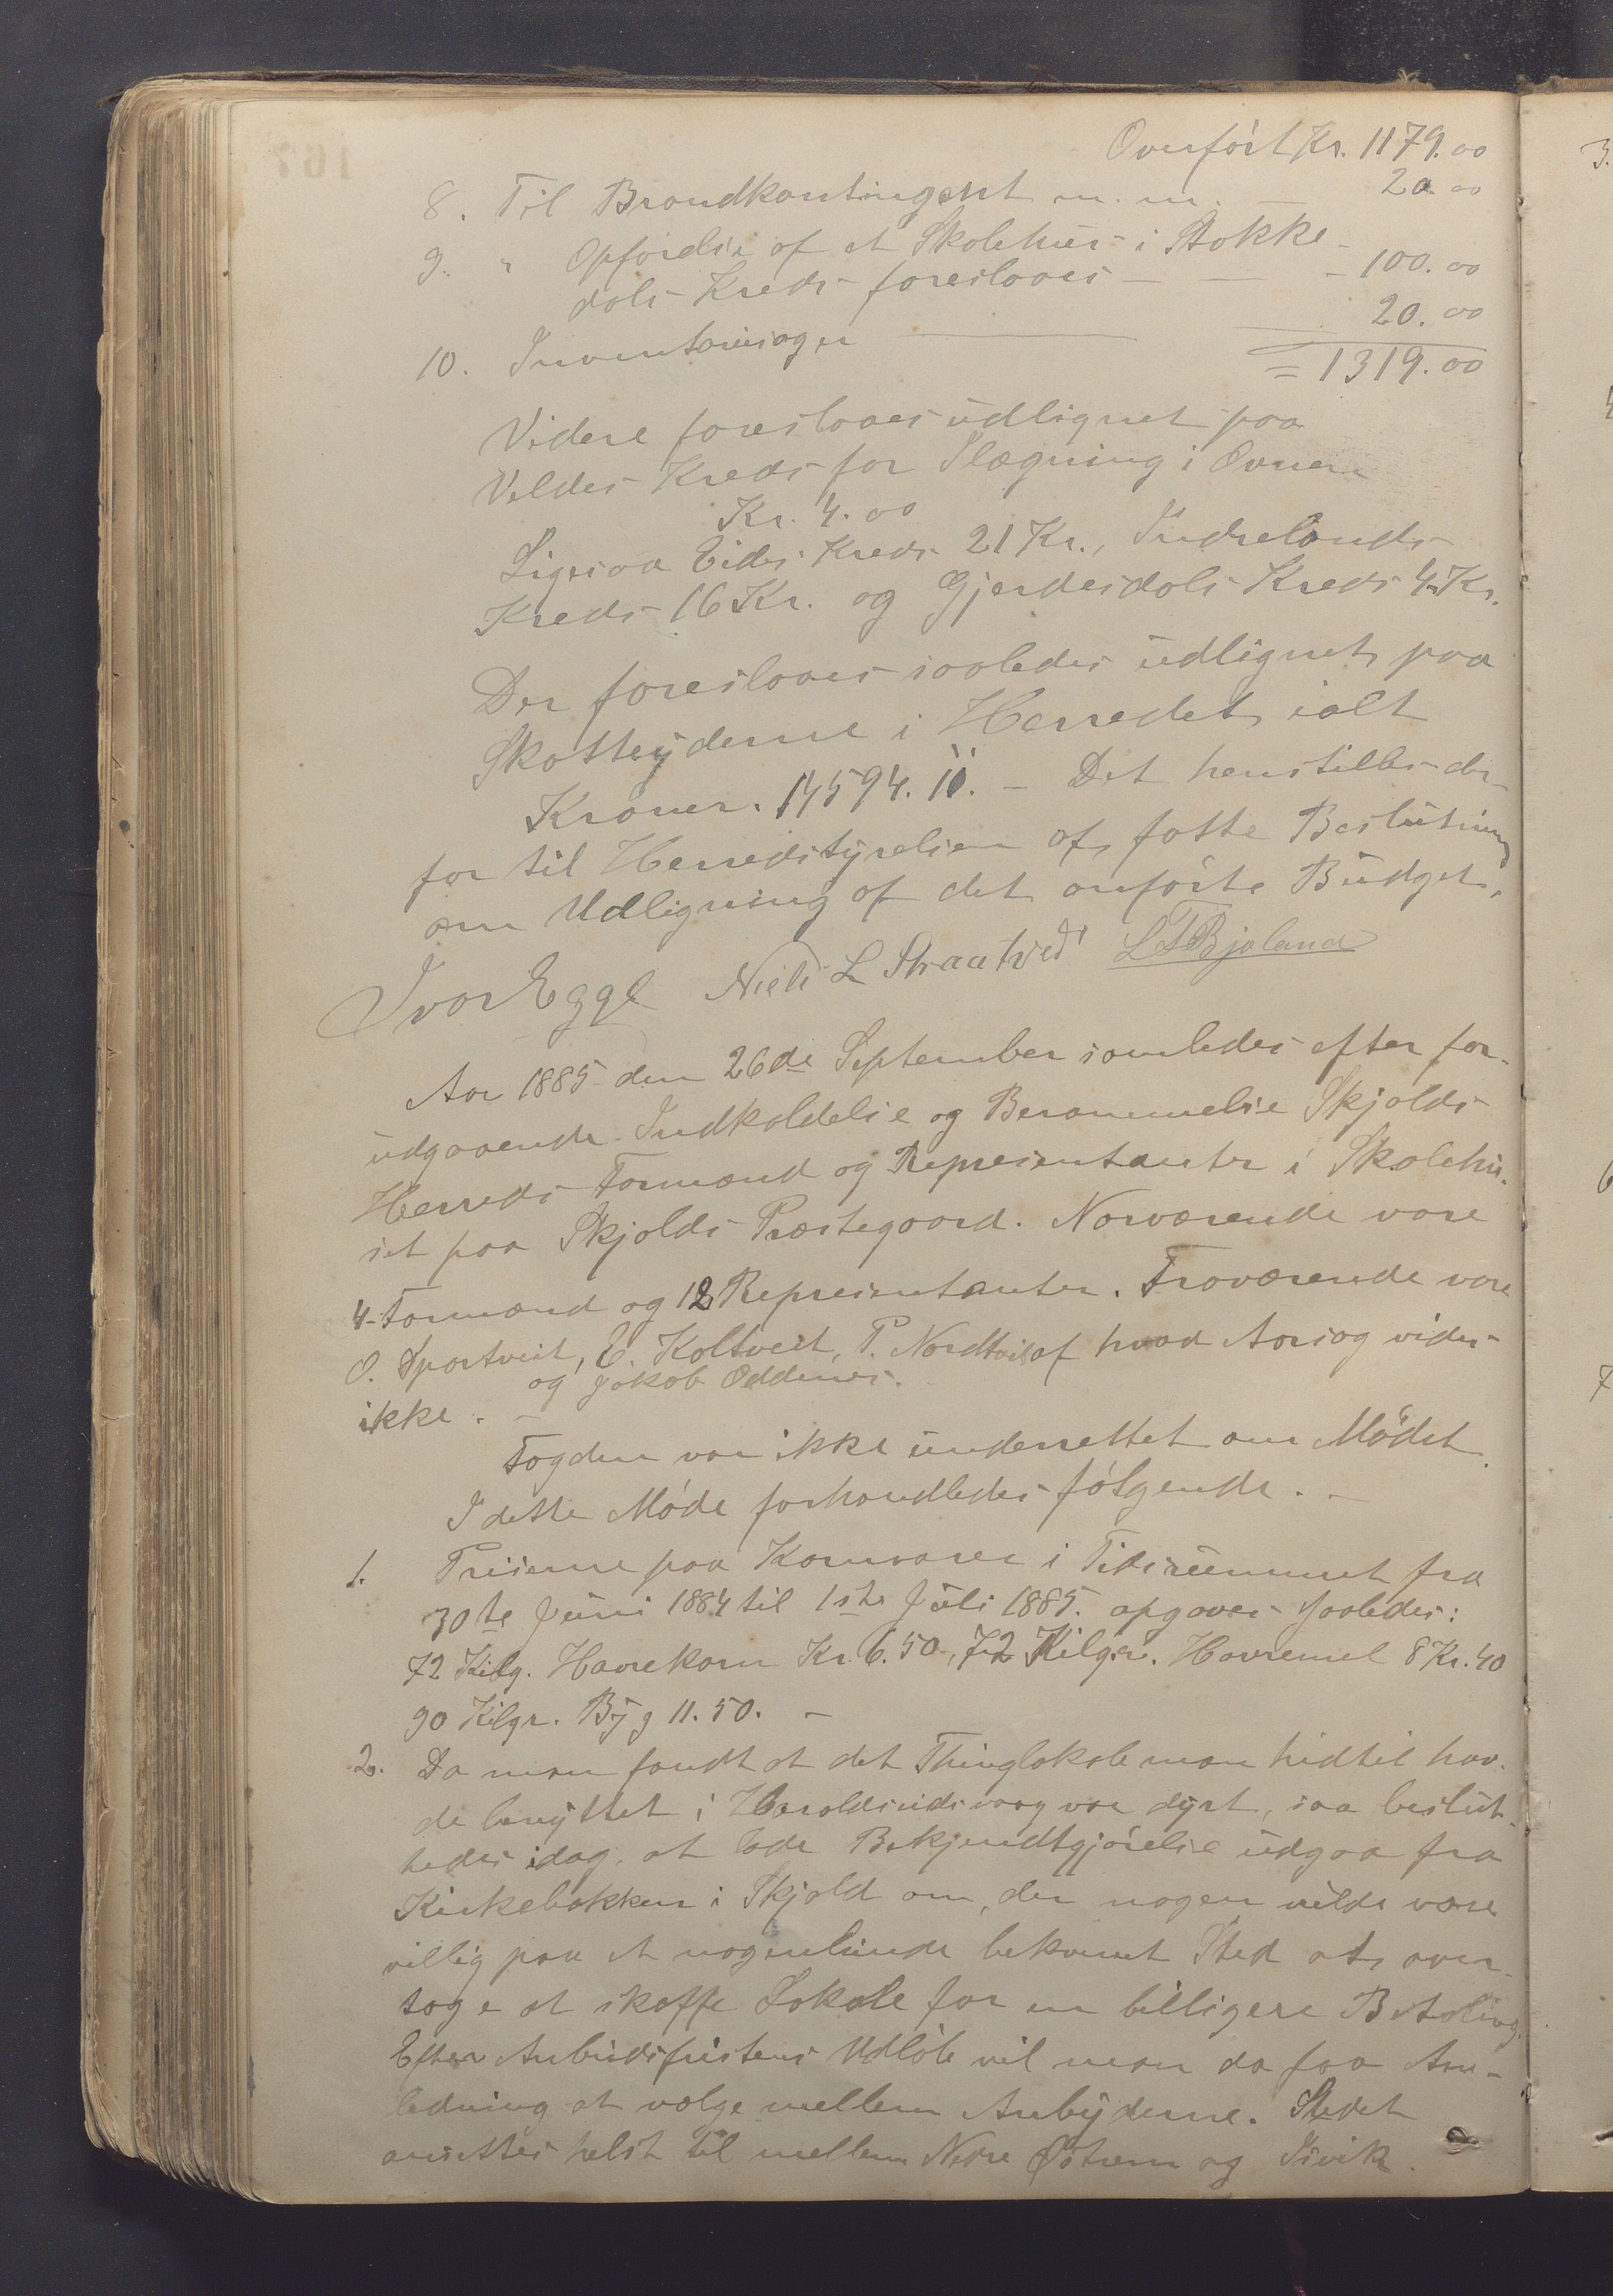 Overført Kr. 1179.00
8. Til Brandkontingent m. m. — 20.00
9. " Opførelse af et Skolehus i Stokke-
dals Kreds foreslaaes — — 100.00
10. Inventariesager — 20.00
= 1319.00
Videre foreslaaes udlignet paa
Veldes Kreds for Plægning i Ovnen
Kr. 4.00
Ligesaa Eides Kreds 21 Kr., Indrelands
Kreds 16 Kr. og Gjerdesdals Kreds 4 Kr.
Der foreslaaes saaledes udlignet paa
Skatteyderne i Herredet ialt
Kroner. 14594.11. — Det henstilles der-
for til Herredstyrelsen at fatte Beslutning
om Udligning af det anførte Budget.
Ivar Egge Niels L Straatveit L T Bjoland
Aar 1885 den 26de September samledes efter for-
udgaaende Indkaldelse og Berammelse Skjolds
Herreds Formænd og Repræsentanter i Skolehu-
set paa Skjolds Præstegaard. Nærværende vare
4 Formænd og 12 Repræsentanter. Fraværende vare
O. Sportveit, E. Koltveit, P. Nordtveit af hvad Aarsag vides
og Jakob Oddenes.
ikke. —
Fogden var ikke underrettet om Mødet.
I dette Møde forhandledes følgende. —
1. Priserne paa Kornvarer i Tidsrummet fra
30te Juni 1884 til 1ste Juli 1885. opgaves saaledes:
72 Kilg. Havrekorn Kr. 6.50, 72 Kilgr. Havremel 8 Kr. 40
90 Kilgr. Byg 11.50. —
2. Da man fandt at det Thinglokale man hidtil hav-
de benyttet i Haraldseidsvaag var dyrt, saa beslut-
tedes idag, at lade Bekjendtgjørelse udgaa fra
Kirkebakken i Skjold om, der nogen vilde være
villig paa et nogenlunde bekvemt Sted at over-
tage at skaffe Lokale for en billigere Betaling.
Efter Anbudsfristens Udløb vil man da faa An-
ledning at vælge mellem Anbyderne. Stedet
ansættes helst til mellem Nedre Østrem og Isvik.